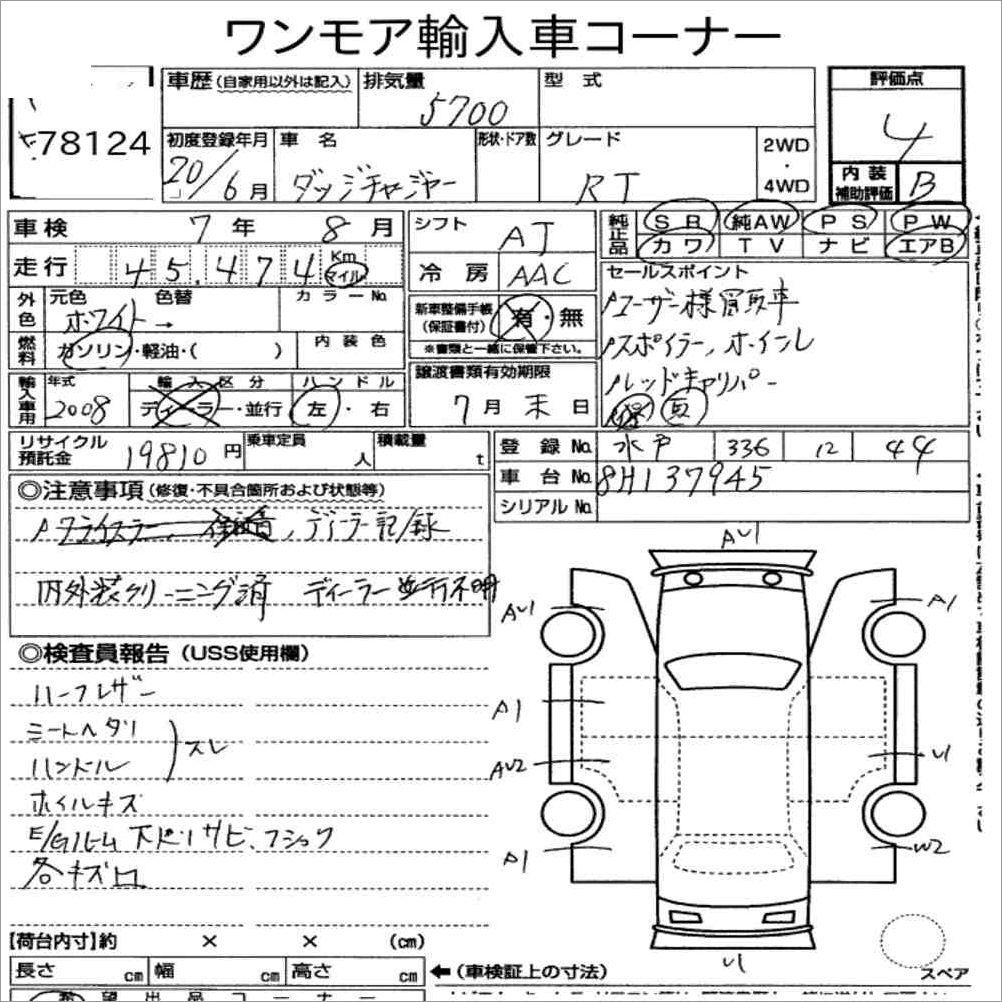 ワンモア輸入車コーナー
78124
車歴(自家用以外は記入) 排気量 5700 型式
初度登録年月 20/6月 車名 ダッジチャージャー 形状・ドア数 グレード RT 2WD・4WD
評価点 4
内装補助評価 B
車検 7年 8月
走行 45,474 Km マイル
外色 元色 ホワイト→ 色替 カラーNo.
燃料 ガソリン・軽油・( ) 内装色
輸入車用 年式 2008 輸入区分 ディーラー・並行 ハンドル 左・右
シフト AT
冷房 AAC
新車整備手帳(保証書付) 有・無
※書類と一緒に保管下さい。
譲渡書類有効期限
7月末日
純正品 SR 純AW PS PW
カワ TV ナビ エアB
セールスポイント
ユーザー様買取車
スポイラー、ホイール
レッドキャリパー
リサイクル預託金 19810円 乗車定員 人 積載量 t
登録No. 水戸 336 12 44
車台No. 8H137945
シリアルNo.
◎注意事項(修復・不具合箇所および状態等)
クライスラー 、ディーラー記録
内外装クリーニング済 ディーラー並行不明
◎検査員報告(USS使用欄)
ハーフレザー
シートヘタリ
ハンドル スレ
ホイルキズ
E/Gルーム 下廻リサビ、フショク
各キズ凹
AU1
AU1 A1
A1
AU2 U1
A1 W2
U1
スペア
【荷台内寸】約 × × (cm)
長さ cm 幅 cm 高さ cm ←(車検証上の寸法)
希望出品コーナー